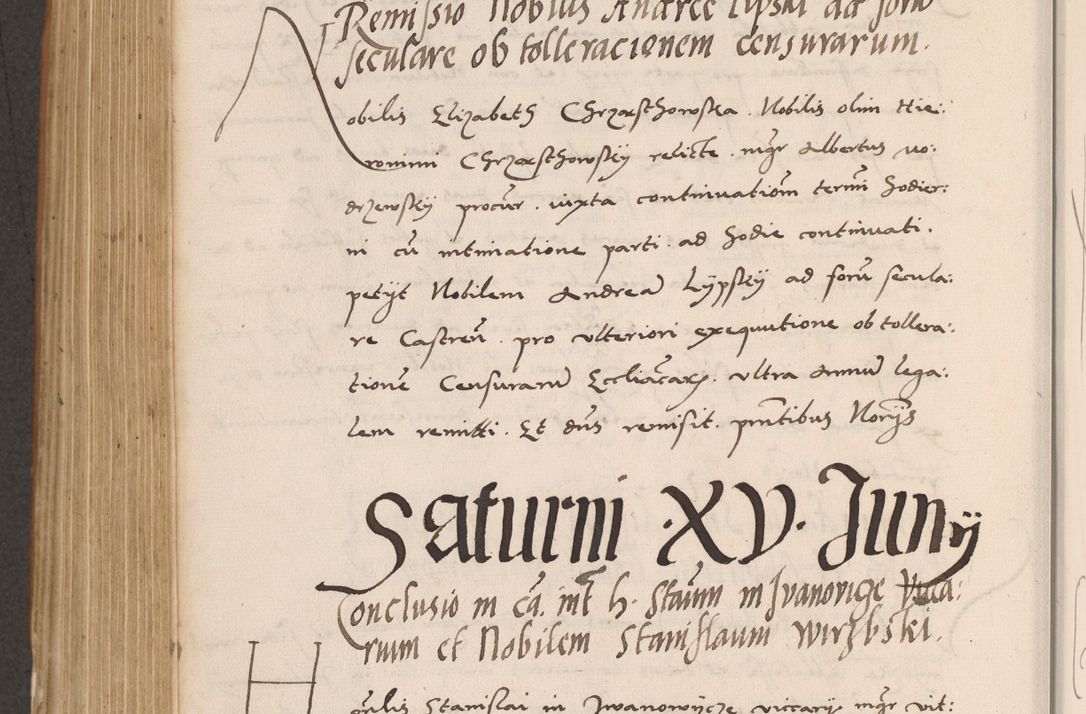 Remissio Nobilis Andree Lipski ad foru
seculare ob tolleracionem censurarum.
Nobilis Elizabeth Chrzasthowska. Nobilis olim Hie:
ronimi Chrzasthowskÿ relicte. mgr Albertus uo:
drzewskÿ procur. iuxta continuationem termi hodier:
ni cu intimatione parti. ad hodie continuati.
petÿt Nobilem Andrea Lÿpskÿ ad foru secula:
re Castren. pro ulteriori exequutione ob tollera:
tione Censuraru Eccliacarx. ultra Annu lega:
lem remitti. Et dns remisit. pntibus Norÿs
Saturni .XV. Junÿ
Conclusio in ca. int h. Staum in Jvanovige Vica:
rium et Nobilem Stanislaum Wirzbski.
H Stanislai in Jwanowÿcze viccarÿ mgr vit: